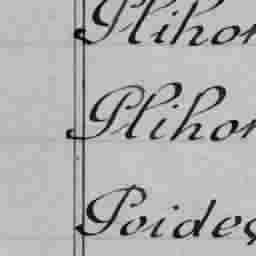 Pliho
Pliho
Poide